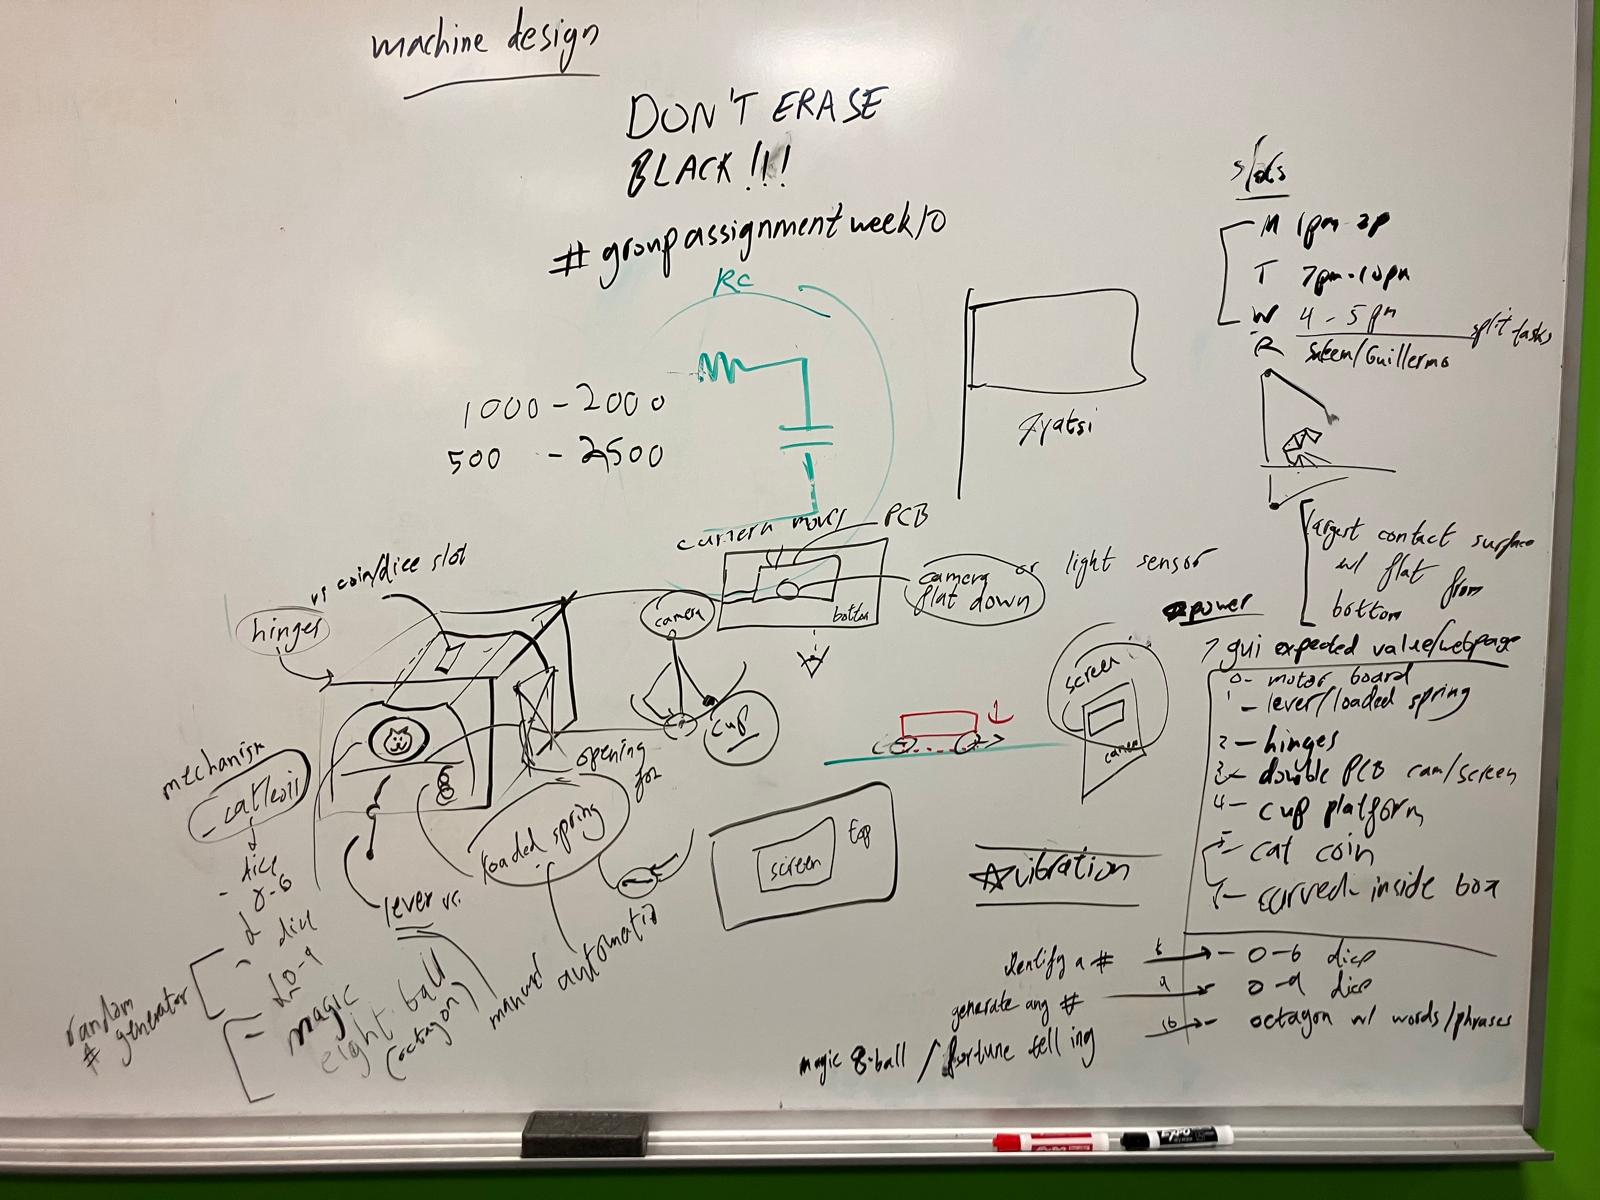 machine design
DON'T ERASE
BLACK!!!
#groupassignmentweek10
RC
1000 - 2000
500 - 2500
slots
M 1pm-2p
T 7pm-10pm
W 4-5pm
split tasks
R /Guillermo
largest contact surface
w/ flat from
bottom
camera moves
PCB
camera
flat down
or light sensor
bottom
vs coin/dice slot
hinges
camera
cup
opening
for
mechanism
- cat/coin
- dice
0-6
- dice
0-9
random
# generator
magic
eight ball
(octagon)
lever vs.
loaded spring
manual
automatic
screen
top
screen
camera
vibration
power
? gui expected value/webpage
0- motor board
1- lever/loaded spring
2- hinges
3- double PCB cam/screen
4- cup platform
5- cat coin
curved inside box
identify a # 0-6 dice
generate any # 0-9 dice
magic 8-ball / fortune telling octagon w/ words/phrases
EXPO
EXPO